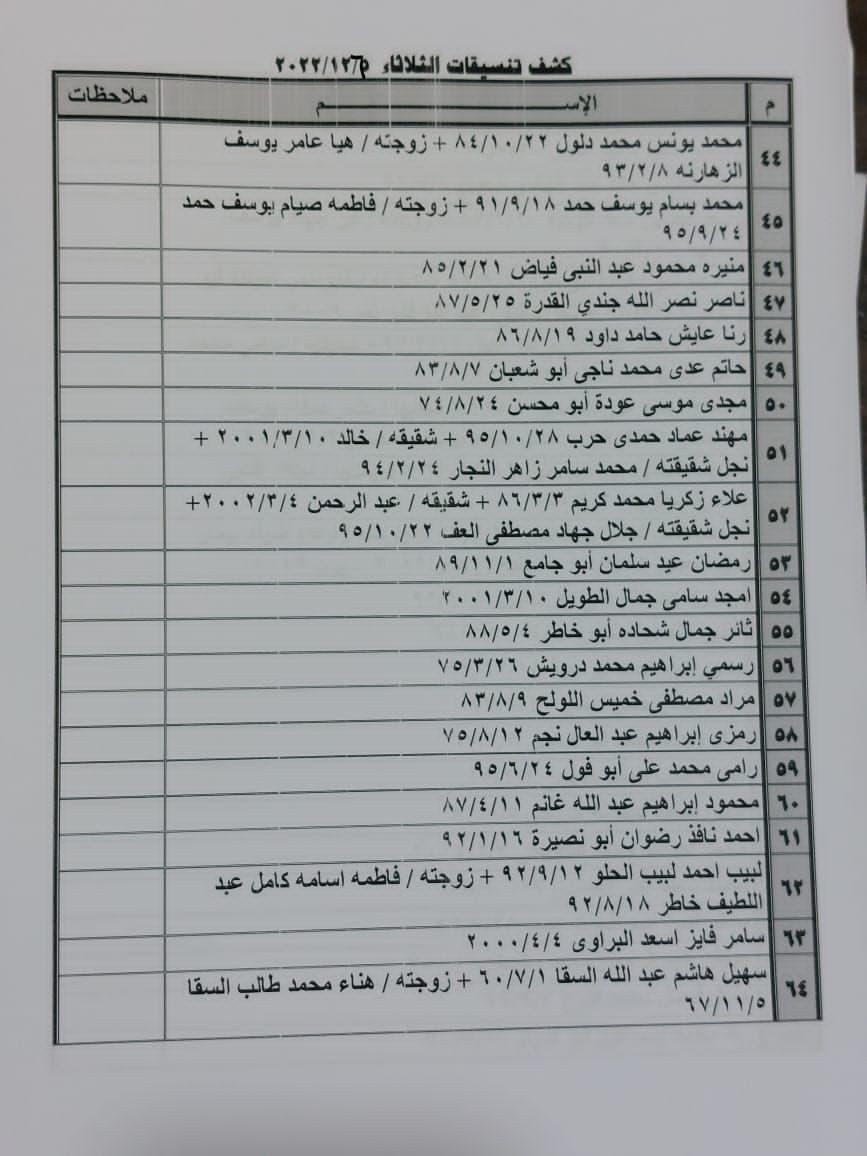 كشف تنسيقات الثلاثاء ٢٠٢٢/١٢/٦م
م الإســـــــــــم ملاحظات
٤٤ محمد يونس محمد دلول ٨٤/١٠/٢٢ + زوجته / هيا عامر يوسف
الزهارنه ٩٣/٢/٨
٤٥ محمد بسام يوسف حمد ٩١/٩/١٨ + زوجته / فاطمه صيام يوسف حمد
٩٥/٩/٢٤
٤٦ منيره محمود عبد النبى فياض ٨٥/٢/٢١
٤٧ ناصر نصر الله جندي القدرة ٨٧/٥/٢٥
٤٨ رنا عايش حامد داود ٨٦/٨/١٩
٤٩ حاتم عدى محمد ناجى أبو شعبان ٨٣/٨/٧
٥٠ مجدى موسى عودة أبو محسن ٧٤/٨/٢٤
٥١ مهند عماد حمدى حرب ٩٥/١٠/٢٨ + شقيقه / خالد ٢٠٠١/٣/١٠ +
نجل شقيقته / محمد سامر زاهر النجار ٩٤/٢/٢٤
٥٢ علاء زكريا محمد كريم ٨٦/٣/٣ + شقيقه / عبد الرحمن ٢٠٠٢/٣/٤+
نجل شقيقته / جلال جهاد مصطفى العف ٩٥/١٠/٢٢
٥٣ رمضان عيد سلمان أبو جامع ٨٩/١١/١
٥٤ امجد سامى جمال الطويل ٢٠٠١/٣/١٠
٥٥ ثائر جمال شحاده أبو خاطر ٨٨/٥/٤
٥٦ رسمي إبراهيم محمد درويش ٧٥/٣/٢٦
٥٧ مراد مصطفى خميس اللولح ٨٣/٨/٩
٥٨ رمزى إبراهيم عبد العال نجم ٧٥/٨/١٢
٥٩ رامى محمد على أبو فول ٩٥/٦/٢٤
٦٠ محمود إبراهيم عبد الله غانم ٨٧/٤/١١
٦١ احمد نافذ رضوان أبو نصيرة ٩٢/١/١٦
٦٢ لبيب احمد لبيب الحلو ٩٢/٩/١٢ + زوجته / فاطمه اسامه كامل عبد
اللطيف خاطر ٩٢/٨/١٨
٦٣ سامر فايز اسعد البراوى ٢٠٠٠/٤/٤
٦٤ سهيل هاشم عبد الله السقا ٦٠/٧/١ + زوجته / هناء محمد طالب السقا
٦٧/١١/٥